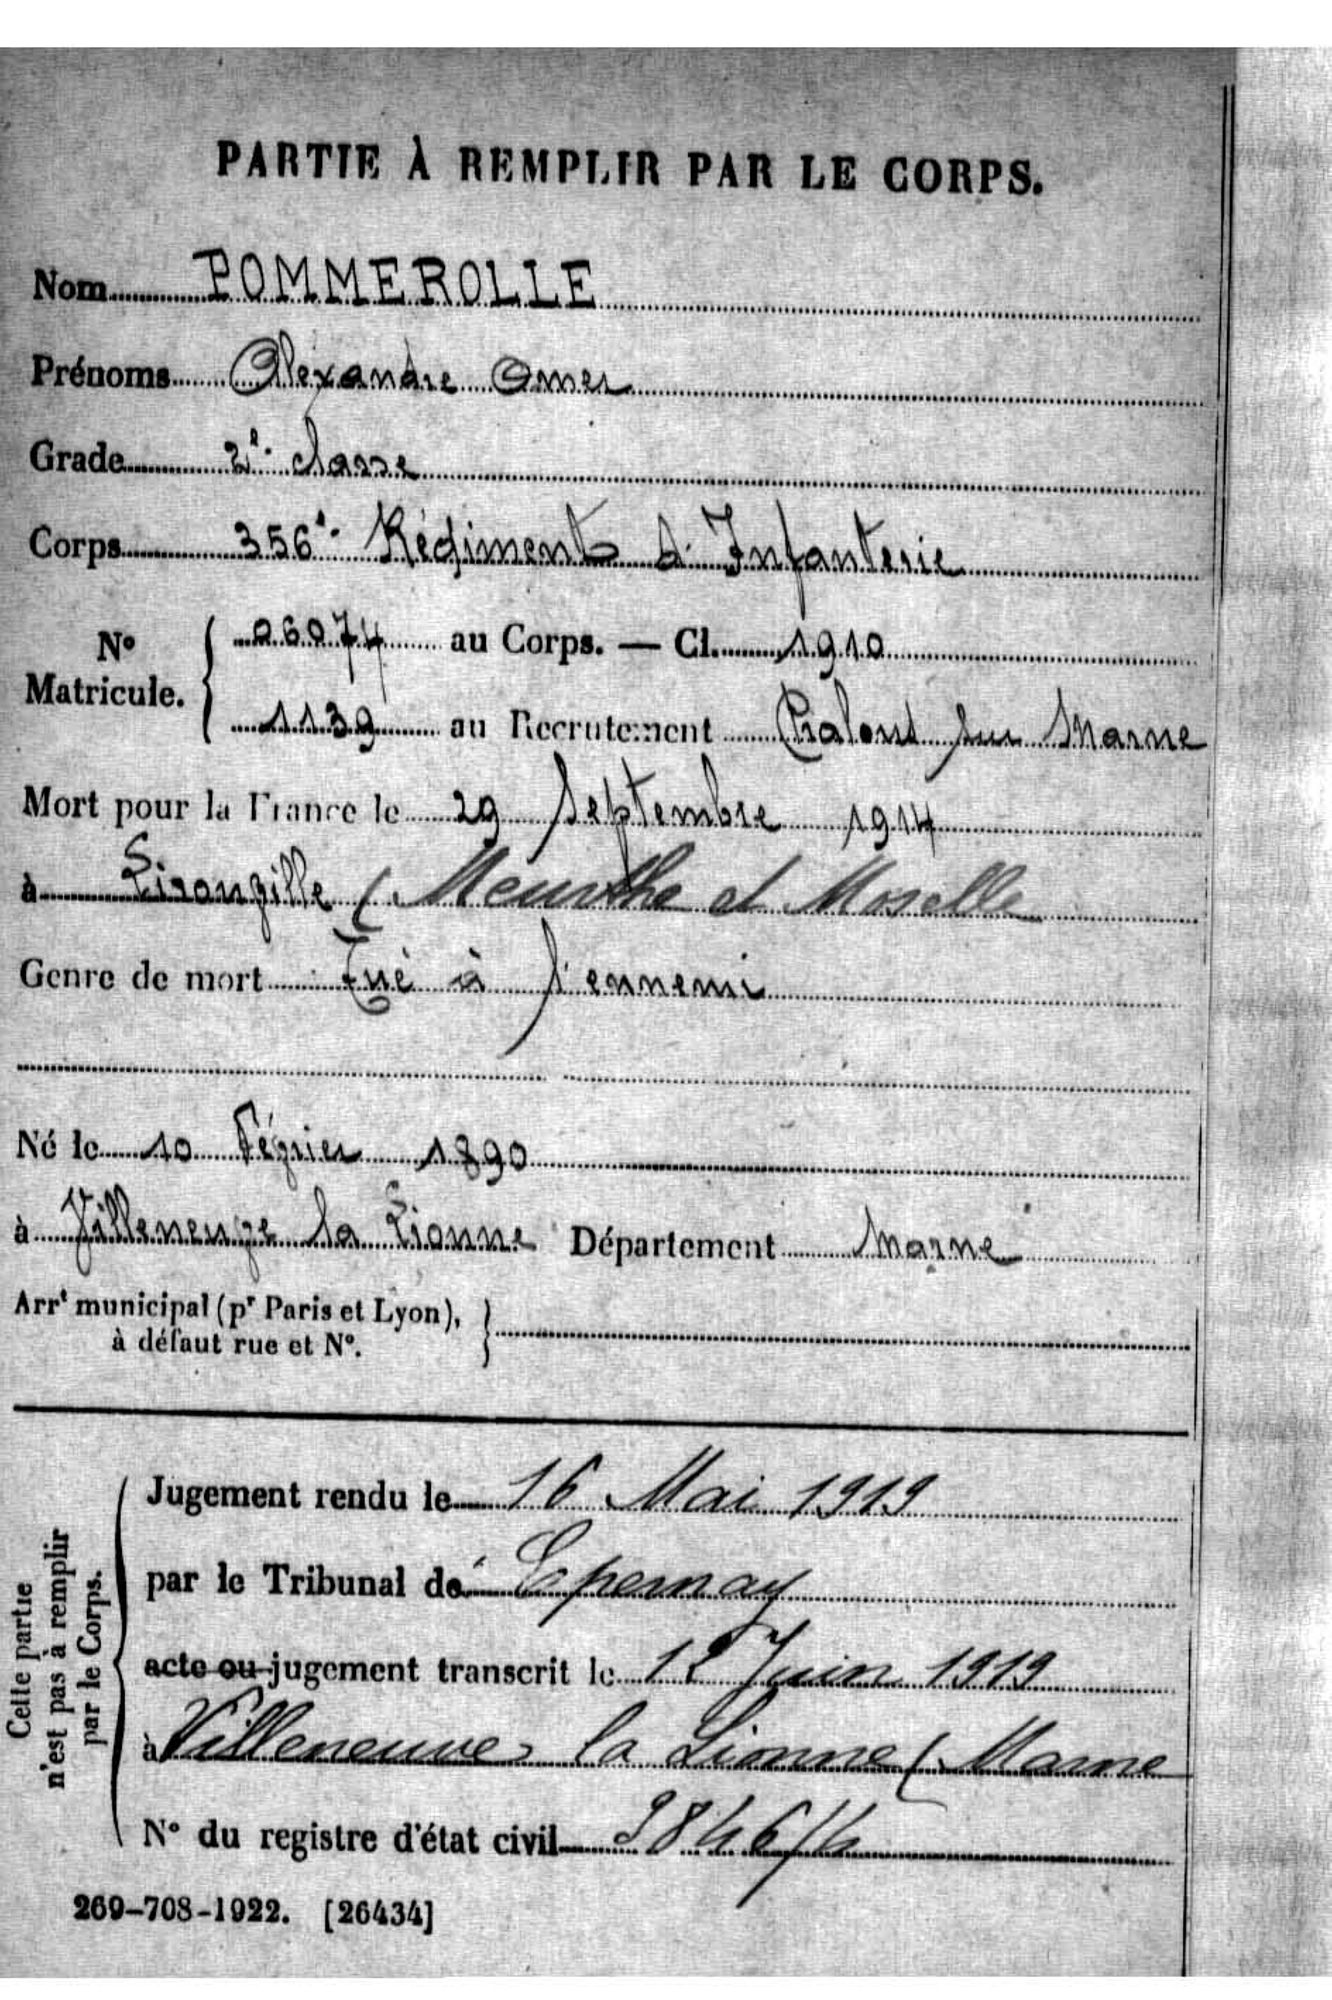 PARTIE À REMPLIR PAR LE CORPS.
Nom POMMEROLLE
Prénoms Alexandre Omer
Grade 2e classe
Corps 356e Régiment d'Infanterie
No Matricule. { 06074 au Corps. — Cl. 1910
1139 au Recrutement Chalons sur Marne
Mort pour la France le 29 Septembre 1914
à Lironville ( Meurthe et Moselle
Genre de mort Tué à l'ennemi
Né le 10 Février 1890
à Villeneuve la Lionne Département Marne
Arrt municipal (pr Paris et Lyon), }
à défaut rue et No.
Cette partie
n'est pas à remplir
par le Corps.
Jugement rendu le 16 Mai 1919
par le Tribunal de Epernay
acte ou jugement transcrit le Juin 1919
à Villeneuve la Lionne ( Marne
No du registre d'état civil
269-708-1922. [26434]